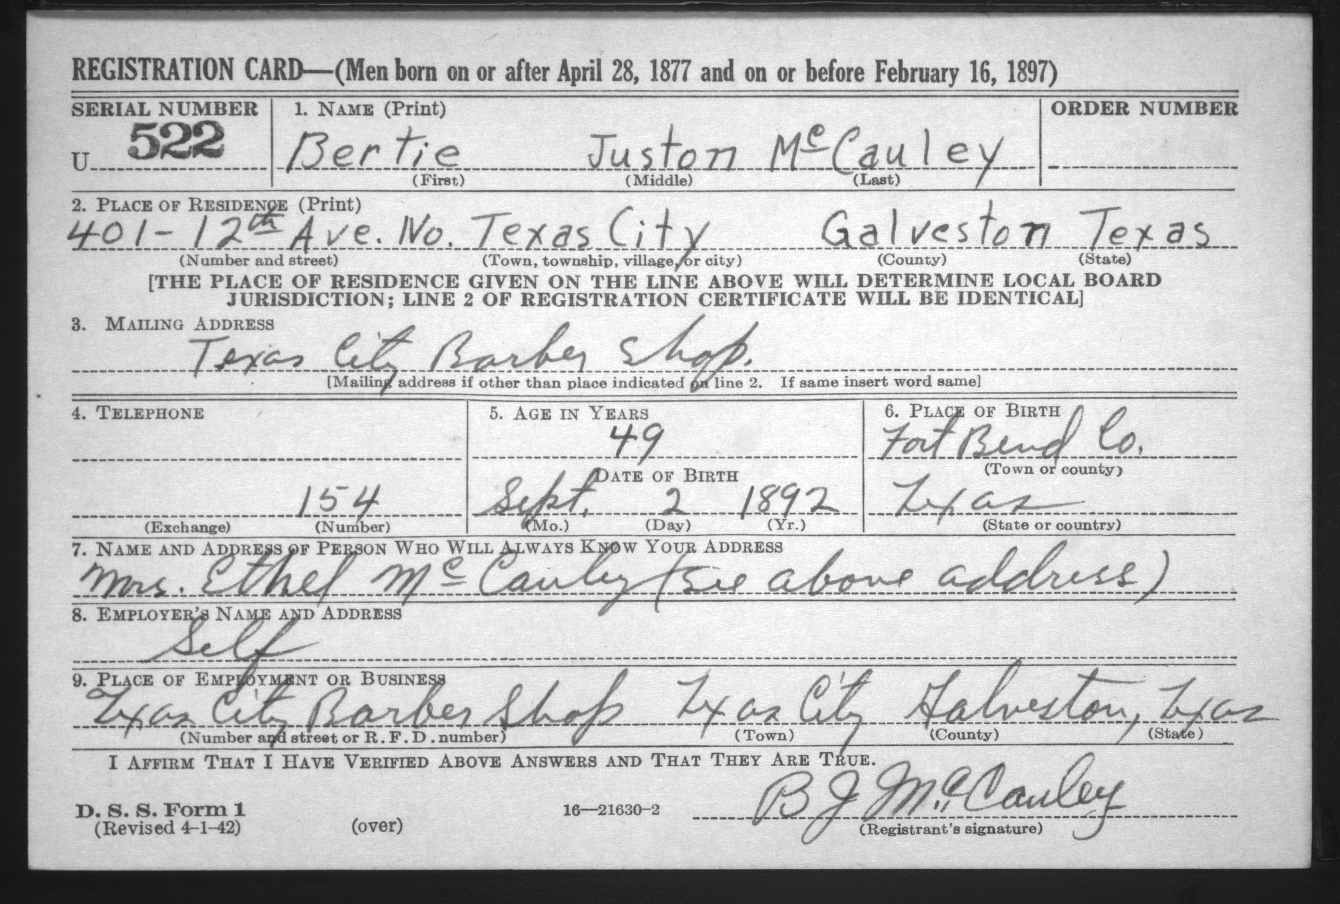 REGISTRATION CARD—(Men born on or after April 28, 1877 and on or before February 16, 1897)
SERIAL NUMBER 1. NAME (Print) ORDER NUMBER
U 522 Bertie Juston McCauley
(First) (Middle) (Last)
2. PLACE OF RESIDENCE (Print)
401-12th Ave. No. Texas City Galveston Texas
(Number and street) (Town, township, village, or city) (County) (State)
[THE PLACE OF RESIDENCE GIVEN ON THE LINE ABOVE WILL DETERMINE LOCAL BOARD
JURISDICTION; LINE 2 OF REGISTRATION CERTIFICATE WILL BE IDENTICAL]
3. MAILING ADDRESS
Texas City Barber Shop.
[Mailing address if other than place indicated on line 2. If same insert word same]
4. TELEPHONE 5. AGE IN YEARS 6. PLACE OF BIRTH
49 Fort Bend Co.
DATE OF BIRTH (Town or county)
154 Sept. 2 1892 Texas
(Exchange) (Number) (Mo.) (Day) (Yr.) (State or country)
7. NAME AND ADDRESS OF PERSON WHO WILL ALWAYS KNOW YOUR ADDRESS
Mrs. Ethel McCauley (see above address)
8. EMPLOYER'S NAME AND ADDRESS
Self
9. PLACE OF EMPLOYMENT OR BUSINESS
Texas City Barber Shop Texas City Galveston, Texas
(Number and street or R. F. D. number) (Town) (County) (State)
I AFFIRM THAT I HAVE VERIFIED ABOVE ANSWERS AND THAT THEY ARE TRUE.
B J McCauley
D. S. S. Form 1 16—21630-2
(Revised 4-1-42) (over) (Registrant's signature)